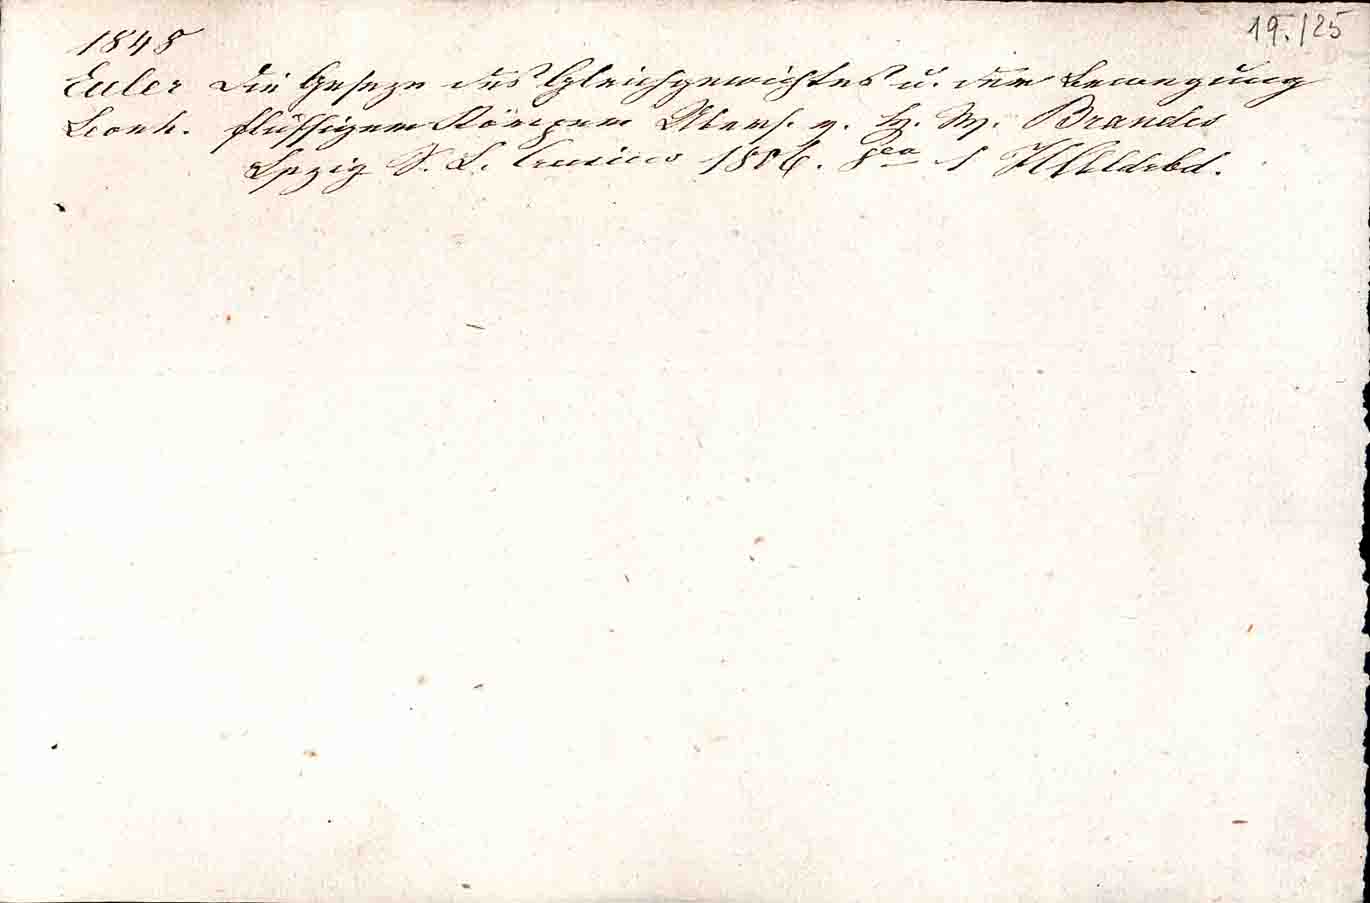 19./25
1848
Euler Die Geseze des Gleichgewichtes u. der Bewegung
Leonh. flüssiger Körper Übers. v. H. W. Brandes
Lpzig S. L. Crusius 1806. 8ca 1 Hldrbd.